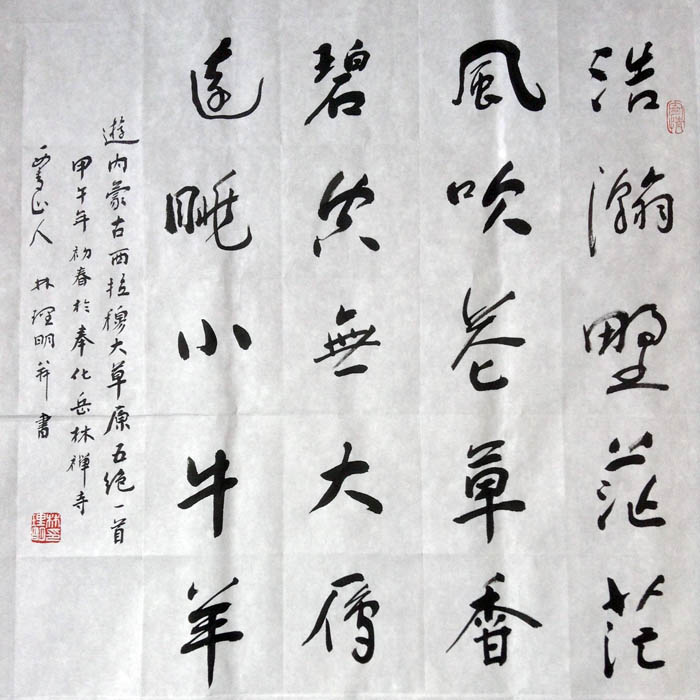 浩瀚野茫茫
風吹花草香
碧空無大雁
遠眺小牛羊
遊内蒙古西拉穆大草原五绝一首
甲午年初春於奉化岳林禅寺
山人 林理明并書